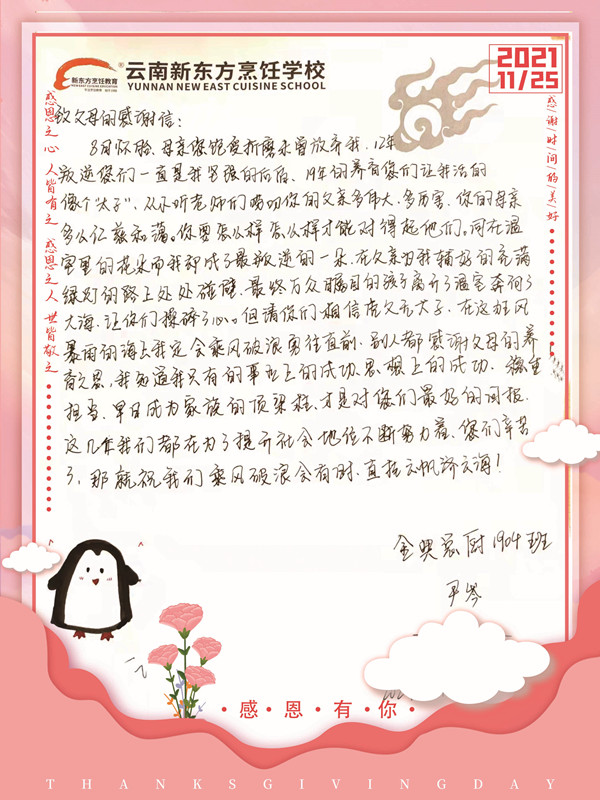 新东方烹饪教育
NEW EAST CUISINE EDUCATION
云南新东方烹饪学校
YUNNAN NEW EAST CUISINE SCHOOL
2021
11/25
感恩之心 人皆有之 感恩之人 世皆敬之
感谢时间的美好
致父母的感谢信:
8月怀胎、母亲您饱受折磨未曾放弃我、12年
叛逆您们一直是我坚强的后盾、19年的养育您们让我活的
像个"太子"、从小听老师们唠叨你的父亲多伟大、多厉害、你的母亲
多么仁慈和蔼。你要怎么样怎么样才能对得起他们。同在温
室里的花朵而我却成了最叛逆的一朵、在父亲为我铺好的充满
绿灯的路上处处碰壁、最终万众瞩目的孩子离开了温室奔向了
大海、让你们操碎了心。但请你们相信虎父无犬子、在这狂风
暴雨的海上我定会乘风破浪勇往直前、别人都感谢父母的养
育之恩,我知道我只有的事业上的成功、思想上的成功、
担当、早日成为家族的顶梁柱、才是对您们最好的回报、
这几年我们都在为了提升社会地位不断努力着、您们辛苦
了、那就祝我们乘风破浪会有时、直挂云帆济沧海!
金典总厨1904班
尹岑
感·恩·有·你
THANKSGIVINGDAY